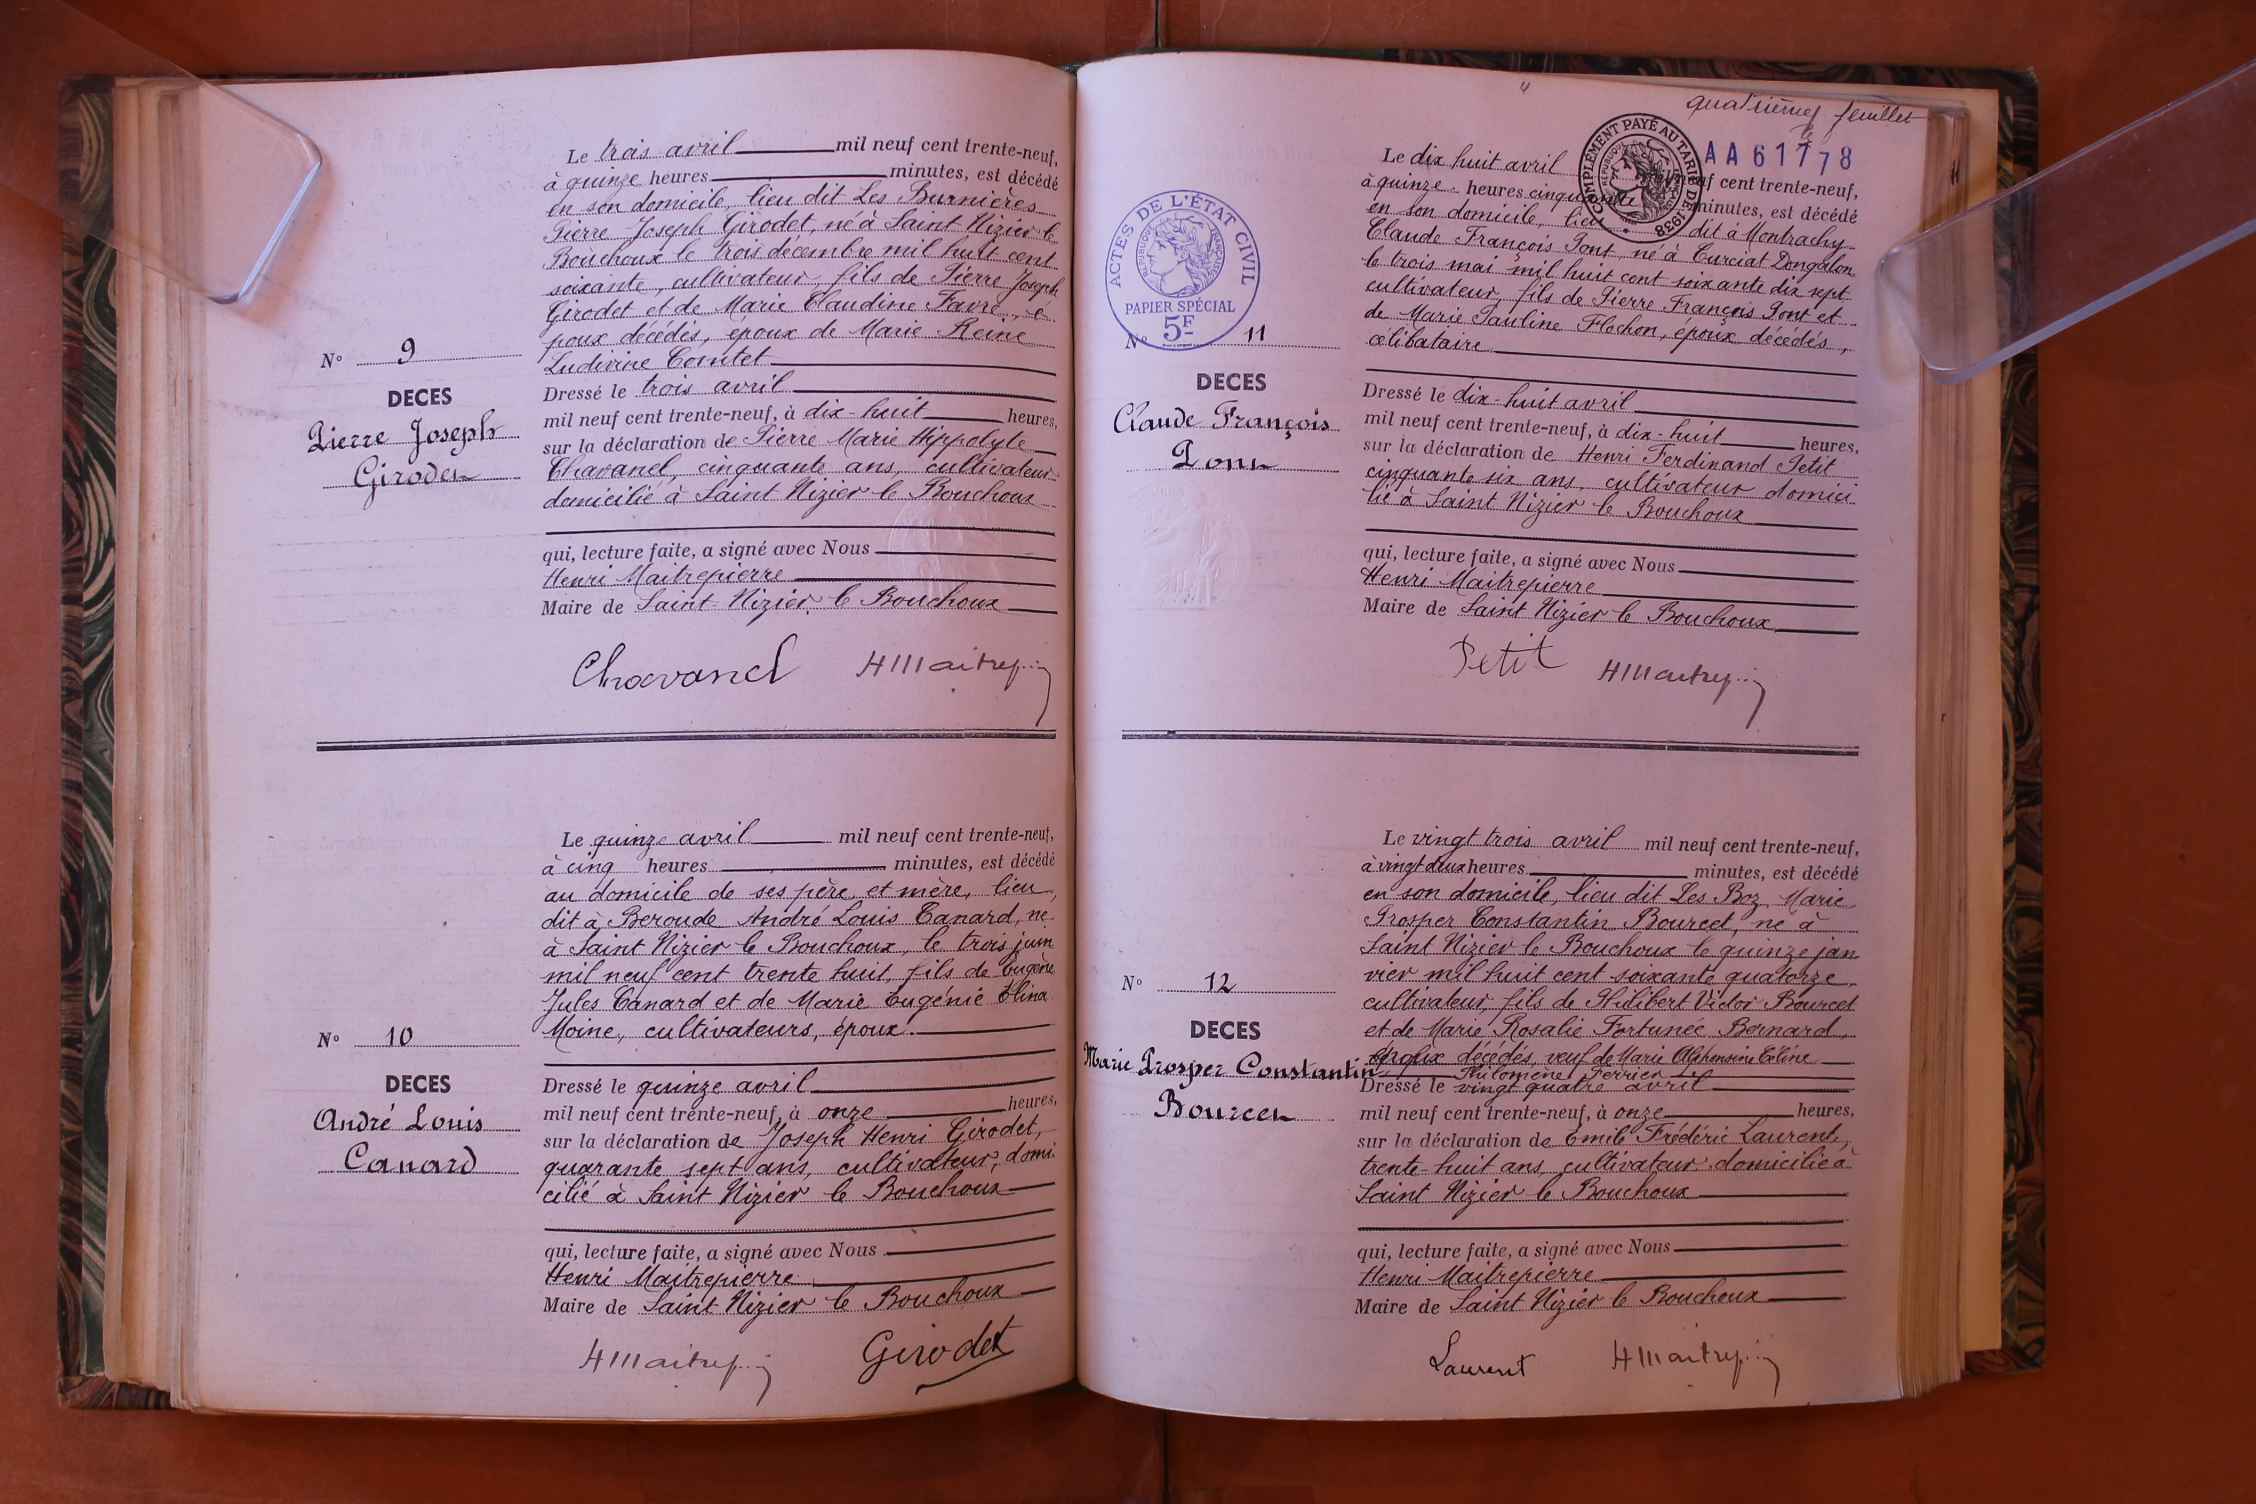 Le trois avril mil neuf cent trente-neuf,
à quinze heures minutes, est décédé
en son domicile, lieu dit Les Burnières
Pierre Joseph Girodet, né à Saint Nizier le
Bouchoux le trois décembre mil huit cent
soixante, cultivateur, fils de Pierre Joseph
Girodet et de Marie Claudine Favre, é
poux décédés, époux de Marie Reine
Ludivine Comtet
N° 9
DECES
Pierre Joseph
Girodet
Dressé le trois avril
mil neuf cent trente-neuf, à dix-huit heures,
sur la déclaration de Pierre Marie Hippolyte
Chavanel, cinquante ans, cultivateur
domicilié à Saint Nizier le Bouchoux
qui, lecture faite, a signé avec Nous
Henri Maitrepierre
Maire de Saint-Nizier le Bouchoux
Chavanel HMaitrep
Le quinze avril mil neuf cent trente-neuf,
à cinq heures minutes, est décédé
au domicile de ses père et mère, lieu
dit à Beroude André Louis Canard, né
à Saint Nizier le Bouchoux, le trois juin
mil neuf cent trente huit, fils de Eugène
Jules Canard et de Marie Eugénie Elina
Moine, cultivateurs, époux.
N° 10
DECES
André Louis
Canard
Dressé le quinze avril
mil neuf cent trente-neuf, à onze heures,
sur la déclaration de Joseph Henri Girodet,
quarante sept ans, cultivateur, domi
cilié à Saint Nizier le Bouchoux
qui, lecture faite, a signé avec Nous
Henri Maitrepierre
Maire de Saint Nizier le Bouchoux
HMaitrep Girodet
4
quatrième feuillet
AA61778
COMPLÉMENT PAYÉ AU TARIF DE 1938
RÉPUBLIQUE FRANÇAISE
ACTES DE L'ÉTAT CIVIL
RÉPUBLIQUE FRANÇAISE
PAPIER SPÉCIAL
5F
Le dix huit avril mil neuf cent trente-neuf,
à quinze heures cinquante minutes, est décédé
en son domicile, lieu dit à Montrachy
Claude François Pont, né à Curciat Dongalon
le trois mai mil huit cent soixante dix sept
cultivateur, fils de Pierre François Pont et
de Marie Pauline Flochon, époux décédés,
célibataire
N° 11
DECES
Claude François
Pont
Dressé le dix-huit avril
mil neuf cent trente-neuf, à dix-huit heures,
sur la déclaration de Henri Ferdinand Petit
cinquante six ans, cultivateur domici
lié à Saint Nizier le Bouchoux
qui, lecture faite, a signé avec Nous
Henri Maitrepierre
Maire de Saint Nizier le Bouchoux
Petit HMaitrep
Le vingt trois avril mil neuf cent trente-neuf,
à vingt deux heures minutes, est décédé
en son domicile, lieu dit Les Boz Marie
Prosper Constantin Bourcet, né à
Saint Nizier le Bouchoux le quinze jan
vier mil huit cent soixante quatorze
cultivateur, fils de Philibert Victor Bourcet
et de Marie Rosalie Fortunée Bernard,
époux décédés, veuf de Marie Alphonsine Céline
Philomène Ferrier
N° 12
DECES
Marie Prosper Constantin
Bourcet
Dressé le vingt quatre avril
mil neuf cent trente-neuf, à onze heures,
sur la déclaration de Emile Frédéric Laurent,
trente-huit ans, cultivateur domicilié à
Saint Nizier le Bouchoux
qui, lecture faite, a signé avec Nous
Henri Maitrepierre
Maire de Saint Nizier le Bouchoux
Laurent HMaitrep